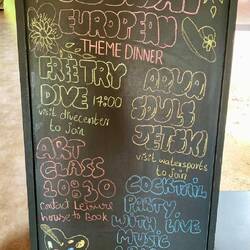 EUROPEAN
THEME DINNER
FREE TRY
DIVE 17:00
visit divecenter
to join
AQUA
SOULS
JETSKI
visit watersports
to join
ART
CLASS
10:30
contact Leisure
house to Book
COCKTAIL
PARTY
WITH LIVE
MUSIC